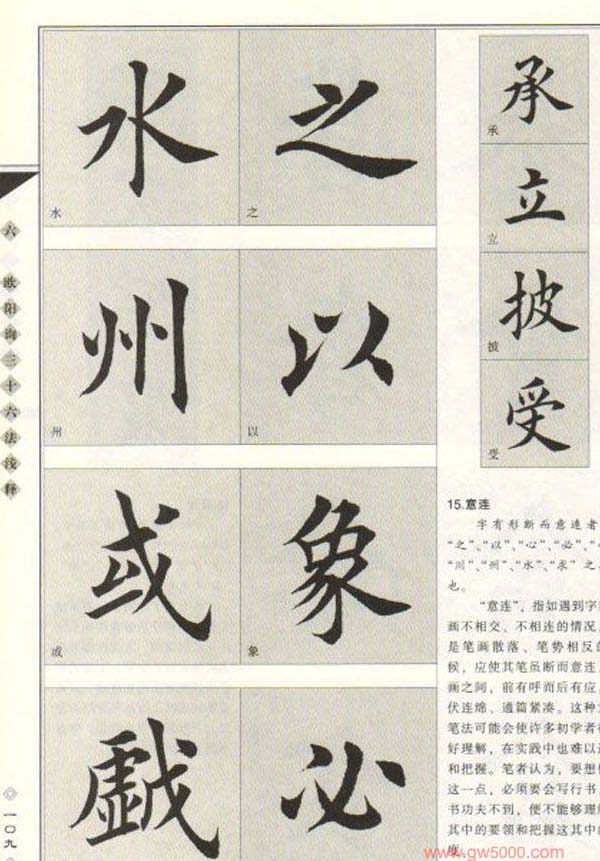 水
水
之
之
承
承
立
立
披
披
受
受
州
州
以
以
或
或
象
象
戲
必
六
欧阳询三十六法浅释
一〇九
15.意连
字有形断而意连者
“之”、“以”、“心”、“必”、“
“川”、“州”、“水”、“求”之
也。
“意连”,指如遇到字
画不相交、不相连的情况
是笔画散落、笔势相反的
候,应使其笔虽断而意连
画之间,前有呼而后有应
伏连绵、通篇紧凑。这种
笔法可能会使许多初学者
好理解,在实践中也难以
和把握。笔者认为,要想
这一点,必须要会写行书
书功夫不到,便不能够理
其中的要领和把握这其中的
度。
www.gw5000.com